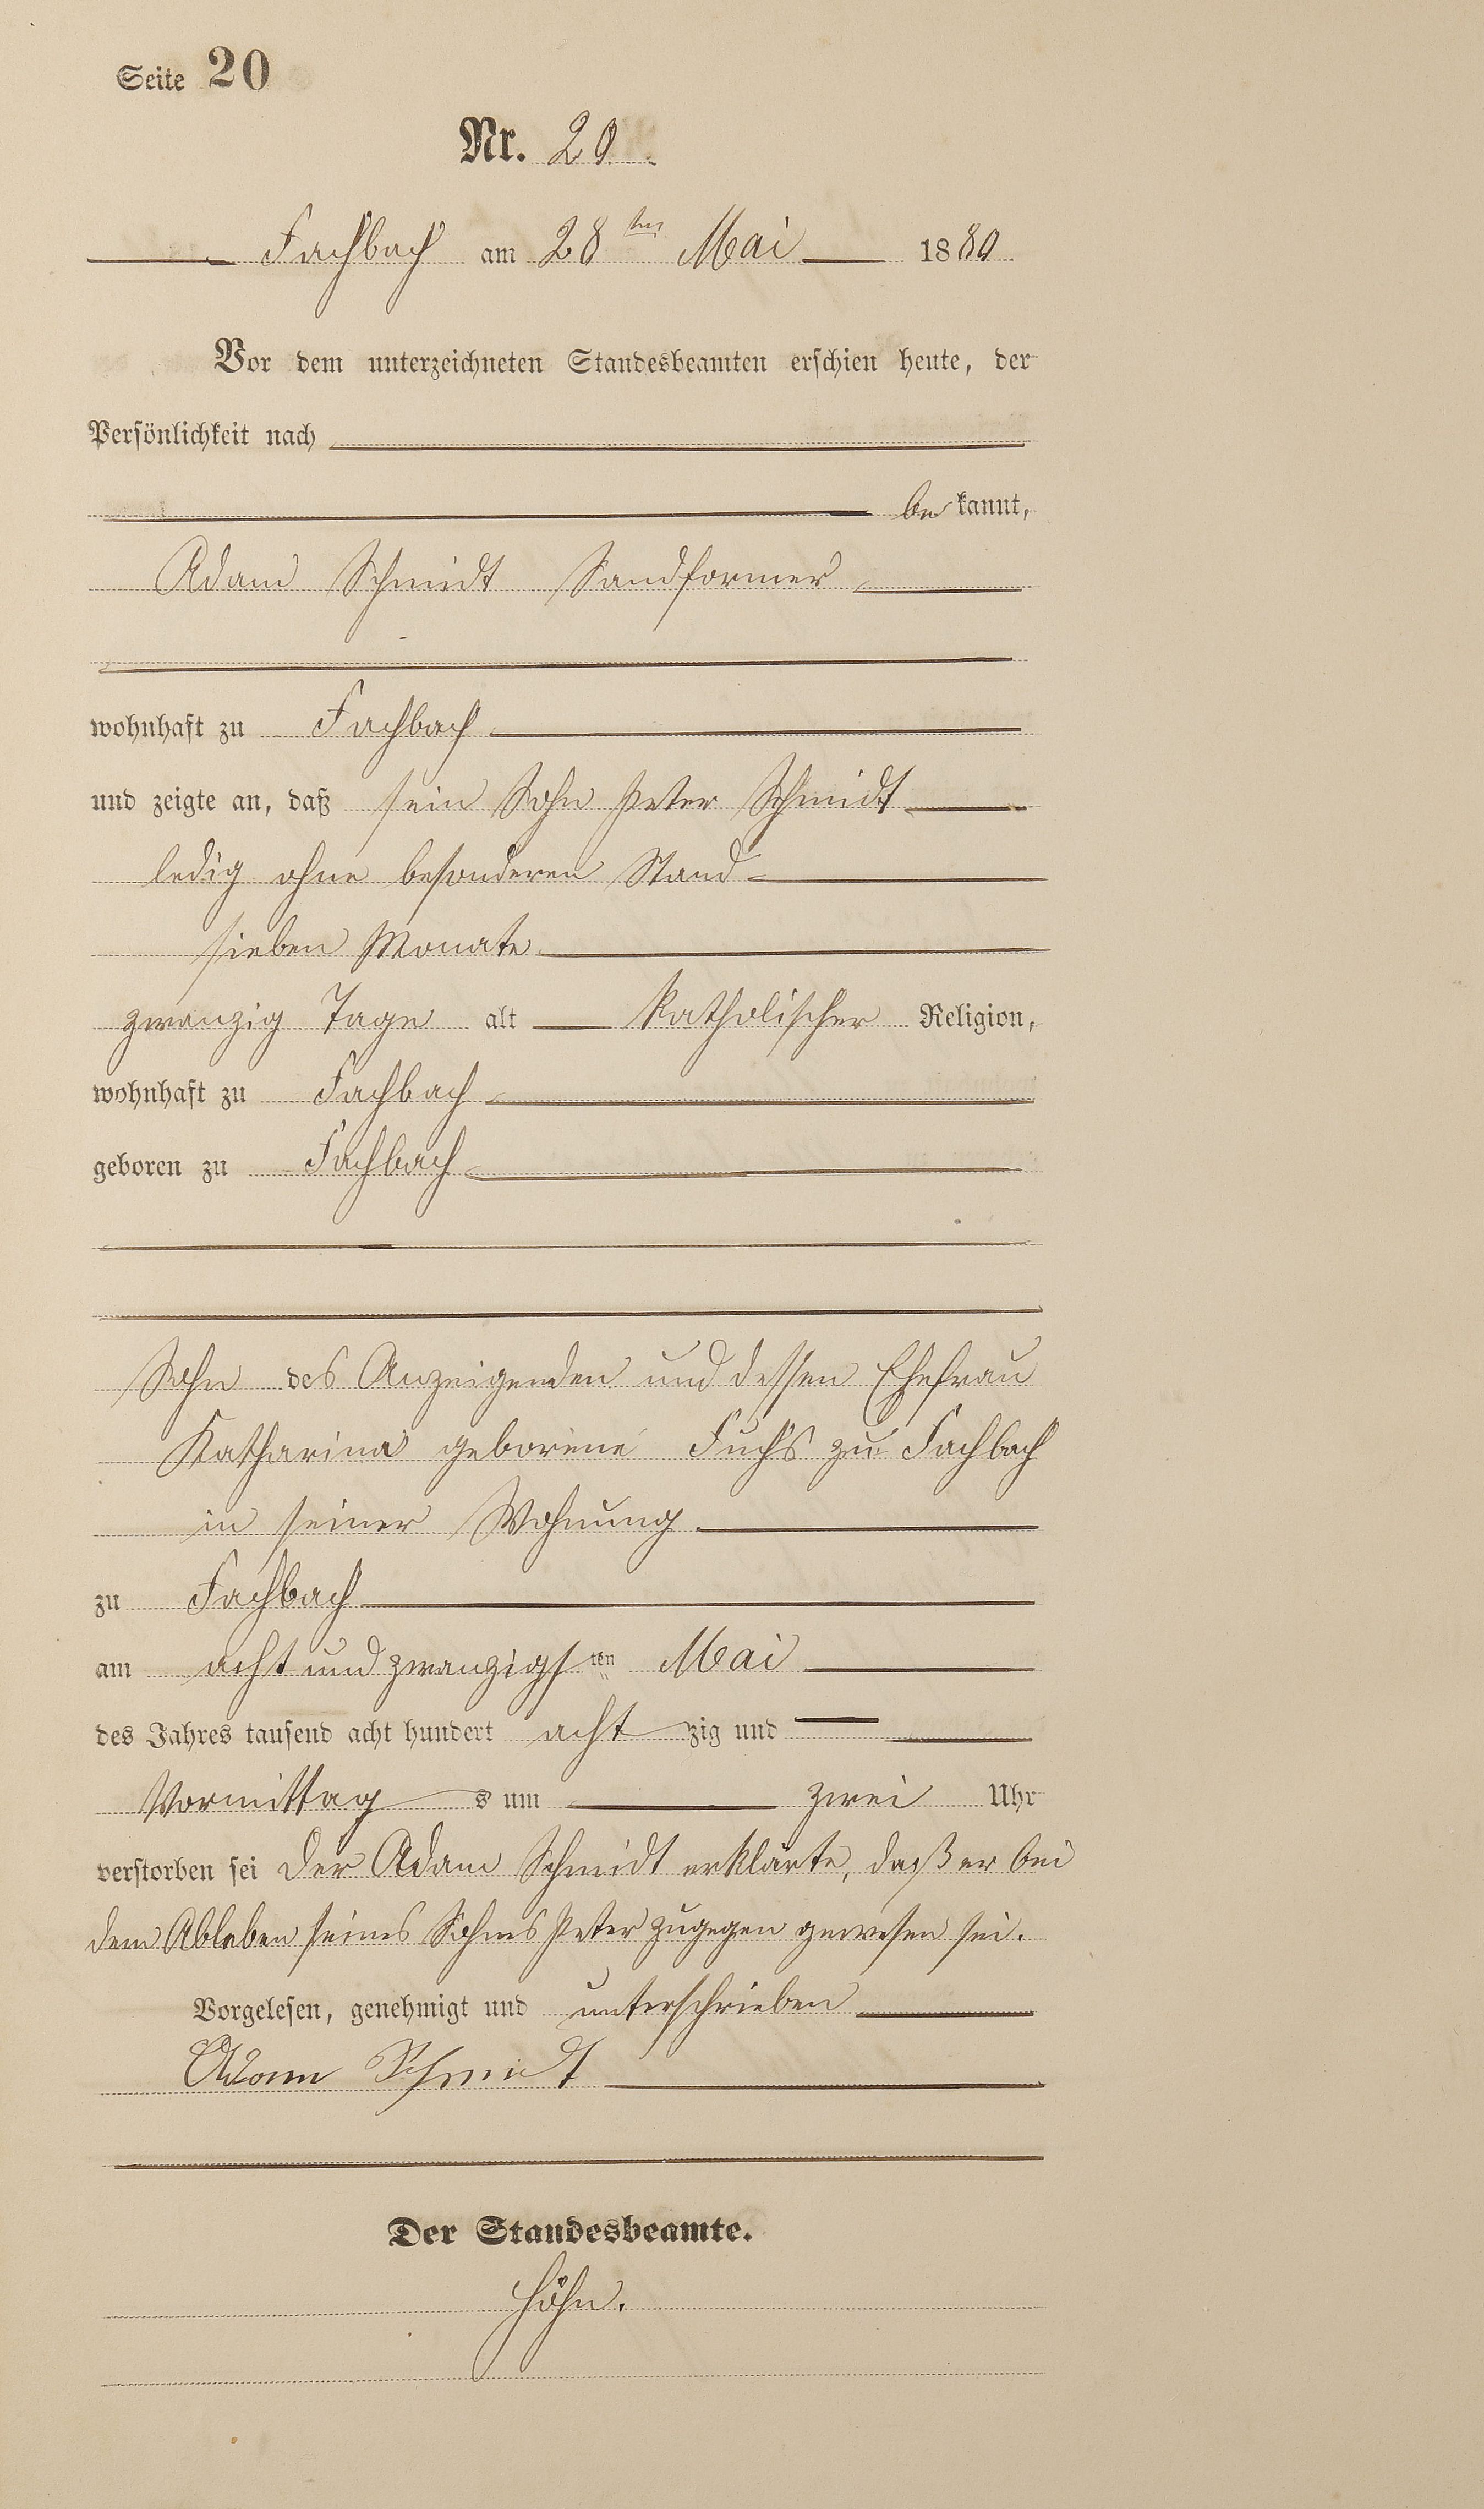 Seite 20
Nr. 20.
Fachbach am 28ten Mai 1880
Vor dem unterzeichneten Standesbeamten erschien heute, der
Persönlichkeit nach
bekannt,
Adam Schmidt Sandformer
wohnhaft zu Fachbach
und zeigte an, daß sein Sohn Peter Schmidt
ledig ohne besonderen Stand
sieben Monate
zwanzig Tage alt katholischer Religion,
wohnhaft zu Fachbach
geboren zu Fachbach
Sohn des Anzeigenden und dessen Ehefrau
Katharina geborene Fuchs zu Fachbach
in seiner Wohnung
zu Fachbach
am acht und zwanzigsten Mai
des Jahres tausend acht hundert achtzig und
Vormittags um zwei Uhr
verstorben sei Der Adam Schmidt erklärte, daß er bei
dem Ableben seines Sohnes Peter zugegen gewesen sei.
Vorgelesen, genehmigt und unterschrieben
Adam Schmidt
Der Standesbeamte.
Höhn.